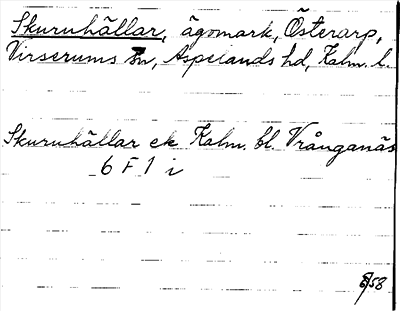 Skuruhällar, ägomark, Österarp,
Virserums sn, Aspelands hd, Kalm. l.
Skuruhällar ek Kalm. bl. Vrånganäs
6 F 1 i
58